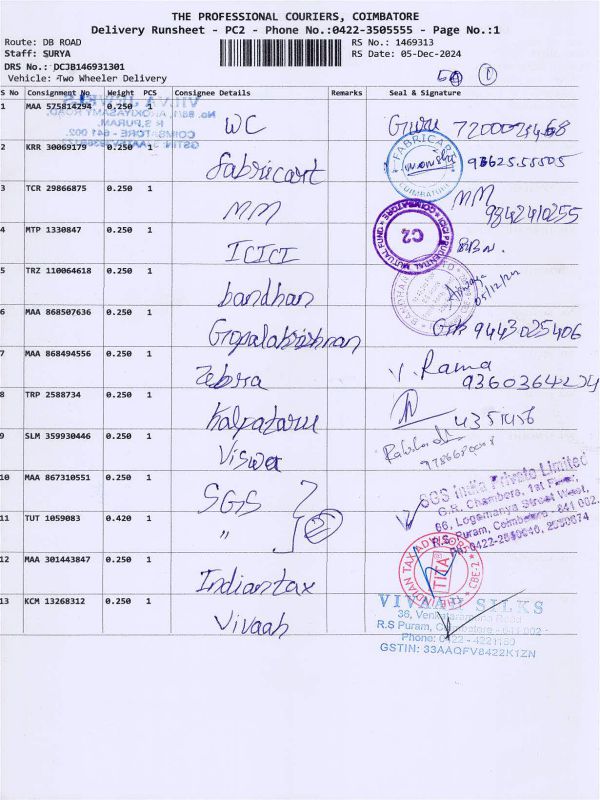 THE PROFESSIONAL COURIERS, COIMBATORE
Delivery Runsheet - PC2 - Phone No.:0422-3505555 - Page No.:1
Route: DB ROAD
RS No.: 1469313
Staff: SURYA
RS Date: 05-Dec-2024
DRS No.: DCJB146931301
Vehicle: Two Wheeler Delivery
S No Consignment No Weight PCS Consignee Details Remarks Seal & Signature
1 MAA 575814294 0.250 1 WC Guru
2 KRR 30069179 0.250 1 fabricart 93625.55505
FABRICART
COIMBATORE
3 TCR 29866875 0.250 1 MM MM
9842410255
4 MTP 1330847 0.250 1 ICICI
ICICI PRUDENTIAL MUTUAL FUND
COIMBATORE
C2
5 TRZ 110064618 0.250 1 bandhan
05/12/24
6 MAA 868507636 0.250 1 Gopalakrishnan 9443025406
7 MAA 868494556 0.250 1 Zebra V. Rama
8 TRP 2588734 0.250 1 Kalpataru
9 SLM 359930446 0.250 1 Viswa
10 MAA 867310551 0.250 1 SGS
SGS India Private Limited
G.R. Chambers, 1st Floor,
66, Logamanya Street West,
R.S. Puram, Coimbatore - 641 002.
11 TUT 1059083 0.420 1 " 2
12 MAA 301443847 0.250 1 Indiantax
TITA
CBE-2
13 KCM 13268312 0.250 1 Vivaah
VIVAAH SILKS
36, Venkataramana Road
R.S Puram, Coimbatore - 641 002
Phone: 0422 - 4221150
GSTIN: 33AAQFV8422K1ZN